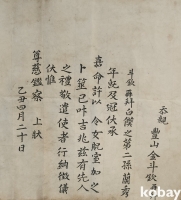 忝親 豊山金斗欽
斗欽再拜白僕之第二孫蘭秀
年旣及冠伏承
嘉命許以 令女貺室如之
卜筮已叶吉兆玆有先人
之禮敬遣使者行納徵儀
伏惟
尊慈鑑察 上狀
乙丑四月二十日
kobay